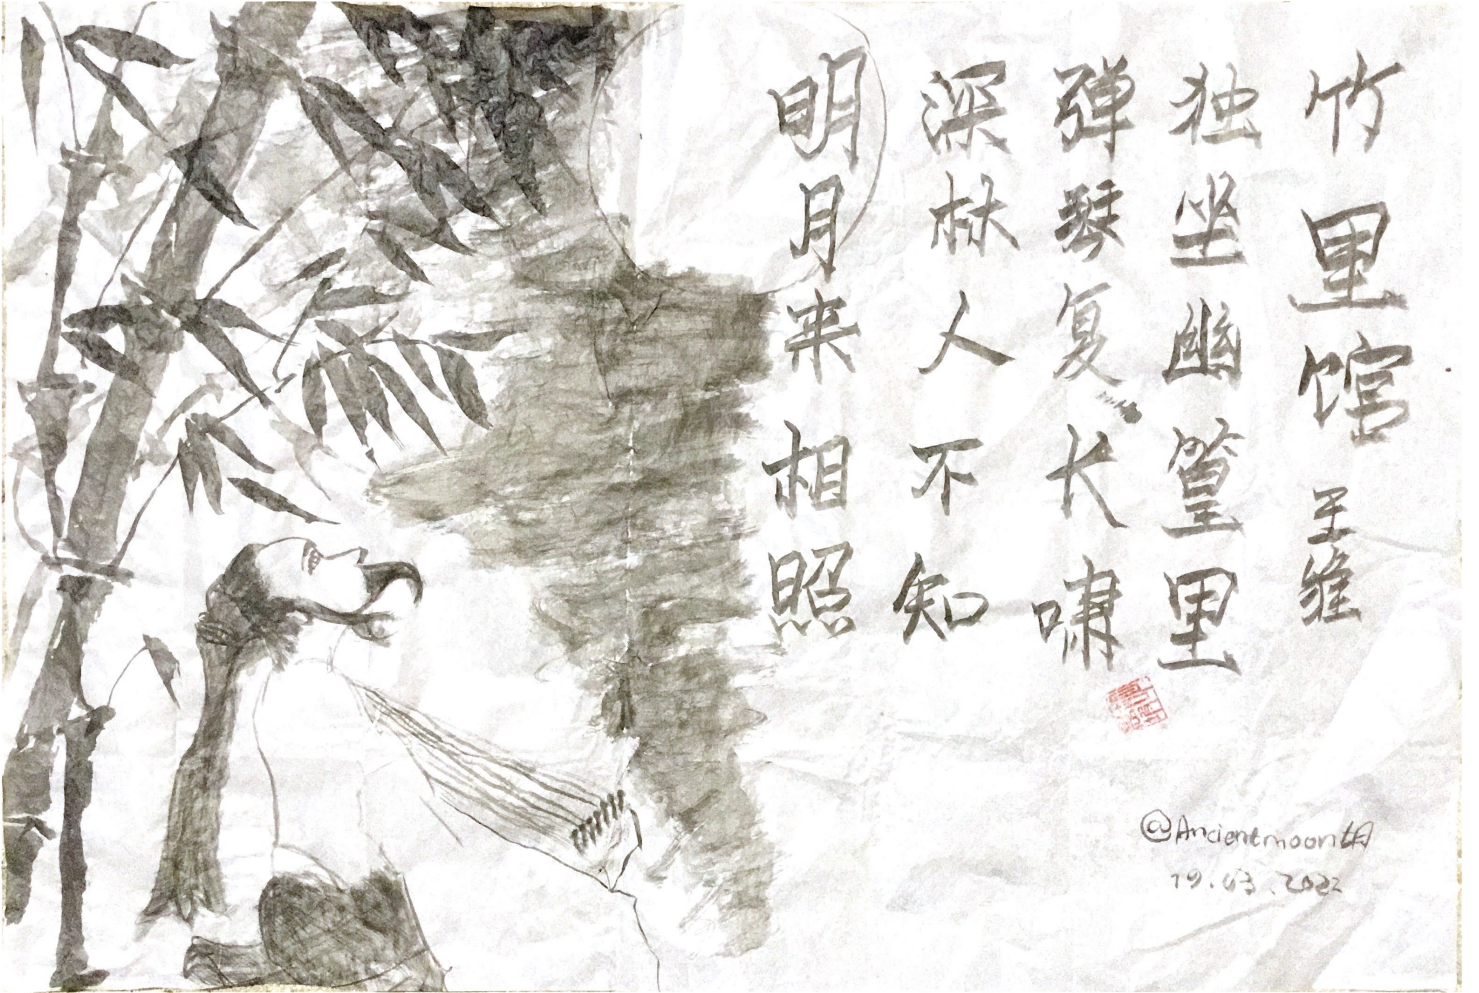 竹里馆 王维
独坐幽篁里
弹琴复长啸
深林人不知
明月来相照
@Ancientmoon明
19.03.2022